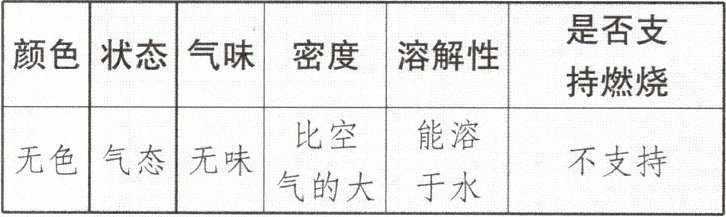 颜色 状态 气味 密度 溶解性 是否支持燃烧
无色 气态 无味 比空气的大 能溶于水 不支持